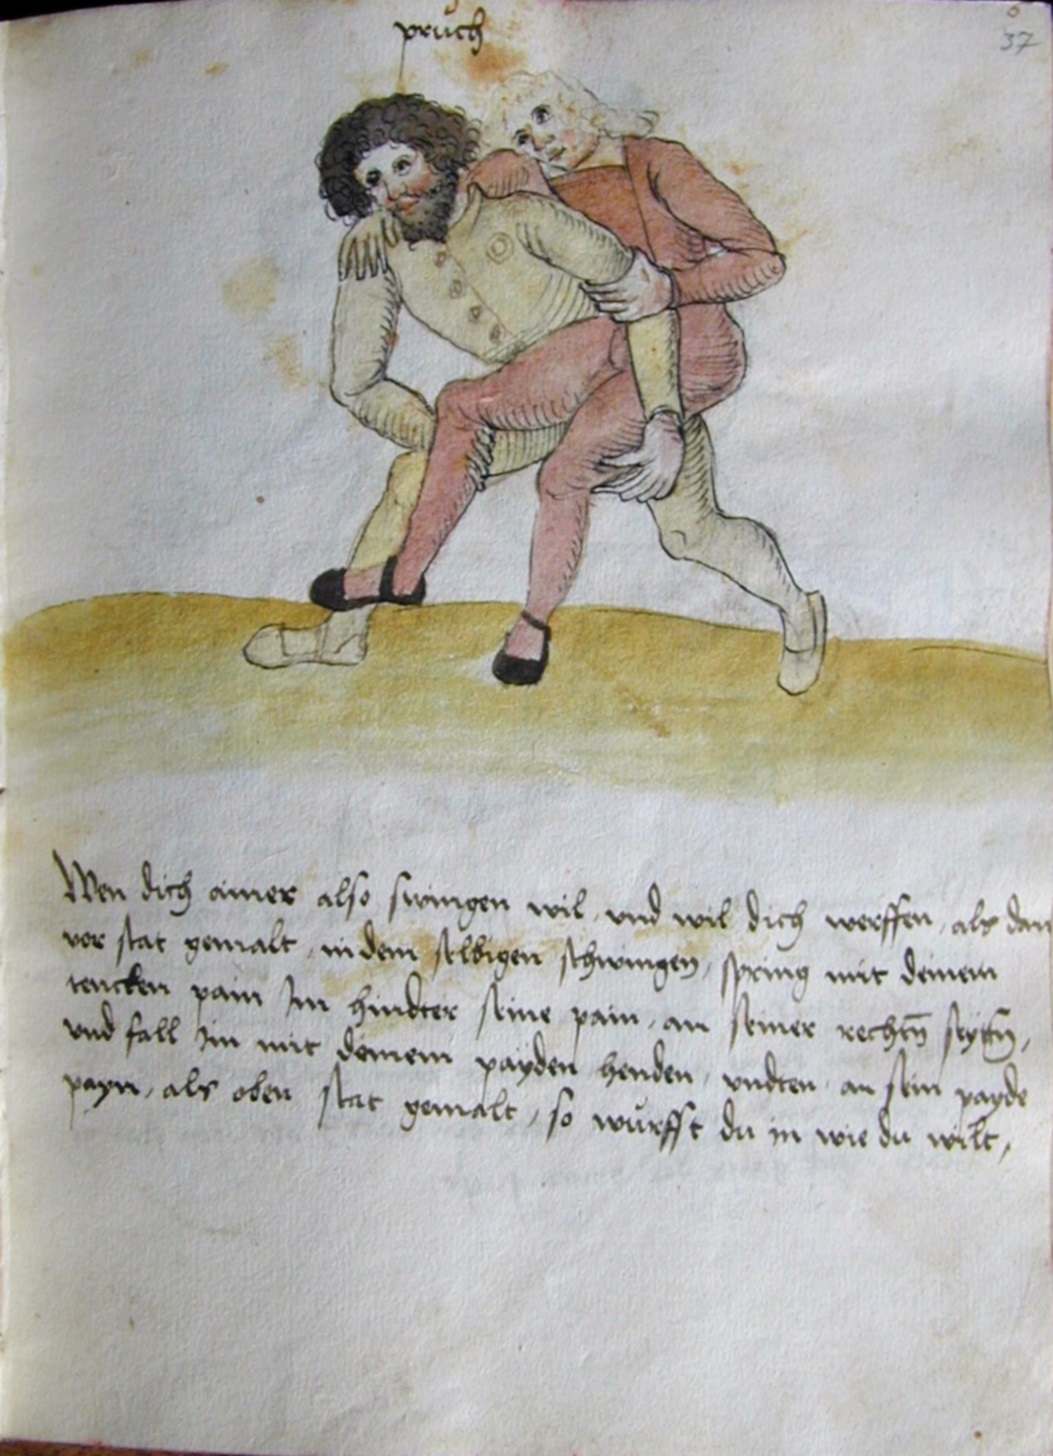 pruch
6
37
Wen dich ainer also swingen wil, vnd wil dich werffen, als dan
vor stat gemalt, in dem selbigen schwingen, spring mit deinem
tencken pain Im hindter seine pain, an seiner rechtn̄ seyttn̄,
vnd fall Im mit deinem payden henden, vndten an sein payde
payn, als oben stat gemalt, so wurffst du in wie du wilt,